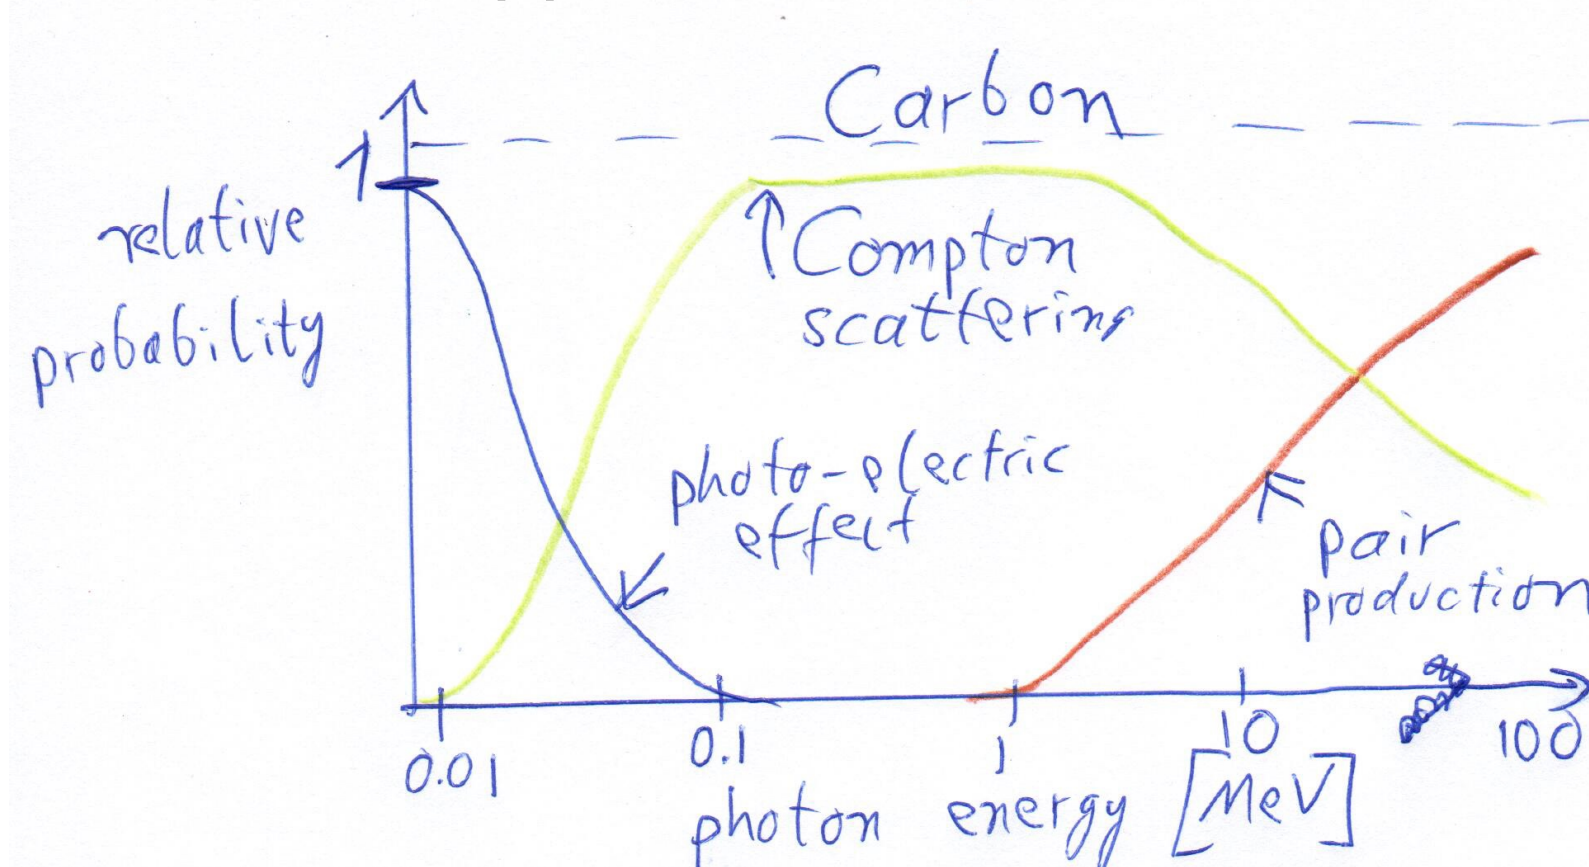 Carbon
1
relative
probability
Compton
scattering
photo-electric
effect
pair
production
0.01
0.1
1
10
100
photon energy [MeV]